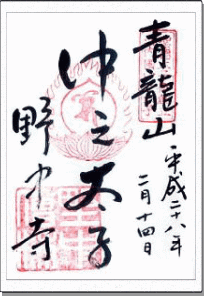 青龍山
平成二十八年
二月十四日
中之太子
野中寺